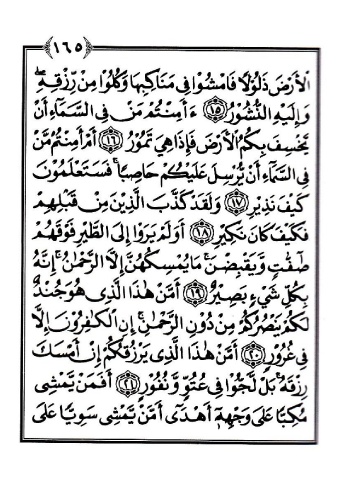 ١٦٥
الْأَرْضَ ذَلُولًا فَامْشُوا فِي مَنَاكِبِهَا وَكُلُوا مِنْ رِزْقِهِ ۖ
وَإِلَيْهِ النُّشُورُ ﴿١٥﴾ ءَأَمِنْتُمْ مَنْ فِي السَّمَاءِ أَنْ
يَخْسِفَ بِكُمُ الْأَرْضَ فَإِذَا هِيَ تَمُورُ ﴿١٦﴾ أَمْ أَمِنْتُمْ مَنْ
فِي السَّمَاءِ أَنْ يُرْسِلَ عَلَيْكُمْ حَاصِبًا ۖ فَسَتَعْلَمُونَ
كَيْفَ نَذِيرِ ﴿١٧﴾ وَلَقَدْ كَذَّبَ الَّذِينَ مِنْ قَبْلِهِمْ
فَكَيْفَ كَانَ نَكِيرِ ﴿١٨﴾ أَوَلَمْ يَرَوْا إِلَى الطَّيْرِ فَوْقَهُمْ
صَٰفَّٰتٍ وَيَقْبِضْنَ ۚ مَا يُمْسِكُهُنَّ إِلَّا الرَّحْمَٰنُ ۚ إِنَّهُ
بِكُلِّ شَيْءٍ بَصِيرٌ ﴿١٩﴾ أَمَّنْ هَٰذَا الَّذِي هُوَ جُنْدٌ
لَكُمْ يَنْصُرُكُمْ مِنْ دُونِ الرَّحْمَٰنِ ۚ إِنِ الْكَافِرُونَ إِلَّا
فِي غُرُورٍ ﴿٢٠﴾ أَمَّنْ هَٰذَا الَّذِي يَرْزُقُكُمْ إِنْ أَمْسَكَ
رِزْقَهُ ۚ بَلْ لَجُّوا فِي عُتُوٍّ وَنُفُورٍ ﴿٢١﴾ أَفَمَنْ يَمْشِي
مُكِبًّا عَلَىٰ وَجْهِهِ أَهْدَىٰ أَمَّنْ يَمْشِي سَوِيًّا عَلَىٰ